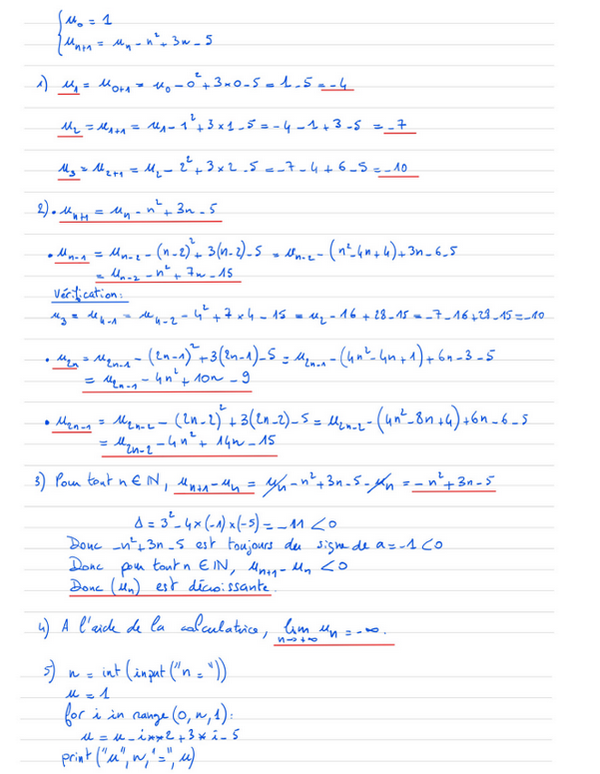 { u₀ = 1
{ uₙ₊₁ = uₙ - n² + 3n - 5
1) u₁ = u₀₊₁ = u₀ - 0² + 3×0 - 5 = 1 - 5 = -4
u₂ = u₁₊₁ = u₁ - 1² + 3×1 - 5 = -4 - 1 + 3 - 5 = -7
u₃ = u₂₊₁ = u₂ - 2² + 3×2 - 5 = -7 - 4 + 6 - 5 = -10
2) • uₙ₊₁ = uₙ - n² + 3n - 5
• uₙ₋₁ = uₙ₋₂ - (n-2)² + 3(n-2) - 5 = uₙ₋₂ - (n² - 4n + 4) + 3n - 6 - 5
= uₙ₋₂ - n² + 7n - 15
Vérification:
u₃ = u₄₋₁ = u₄₋₂ - 4² + 7×4 - 15 = u₂ - 16 + 28 - 15 = -7 - 16 + 28 - 15 = -10
• u₂ₙ = u₂ₙ₋₁ - (2n-1)² + 3(2n-1) - 5 = u₂ₙ₋₁ - (4n² - 4n + 1) + 6n - 3 - 5
= u₂ₙ₋₁ - 4n² + 10n - 9
• u₂ₙ₋₁ = u₂ₙ₋₂ - (2n-2)² + 3(2n-2) - 5 = u₂ₙ₋₂ - (4n² - 8n + 4) + 6n - 6 - 5
= u₂ₙ₋₂ - 4n² + 14n - 15
3) Pour tout n ∈ ℕ, uₙ₊₁ - uₙ = uₙ - n² + 3n - 5 - uₙ = -n² + 3n - 5
Δ = 3² - 4×(-1)×(-5) = -11 < 0
Donc -n² + 3n - 5 est toujours du signe de a = -1 < 0
Donc pour tout n ∈ ℕ, uₙ₊₁ - uₙ < 0
Donc (uₙ) est décroissante.
4) A l'aide de la calculatrice, lim n→+∞ uₙ = -∞.
5) n = int(input("n = "))
u = 1
for i in range(0, n, 1):
u = u - i**2 + 3*i - 5
print("u", n, "=", u)